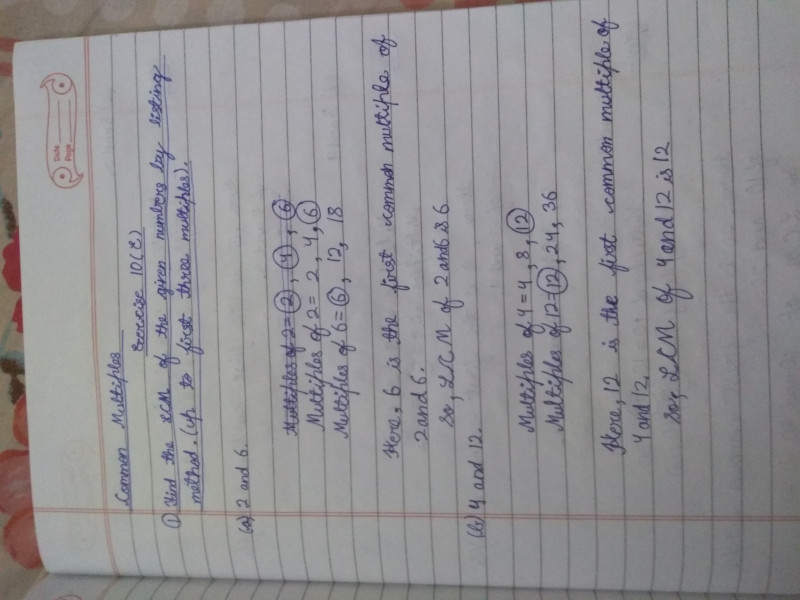 Date
Page
Common Multiples
Exercise 10(C)
① Find the LCM of the given numbers by listing
method. (up to first three multiples).
(a) 2 and 6.
Multiples of 2 = 2, 4, 6
Multiples of 2 = 2, 4, 6
Multiples of 6 = 6, 12, 18
Here, 6 is the first common multiple of
2 and 6.
So, LCM of 2 and 6 is 6
(b) 4 and 12.
Multiples of 4 = 4, 8, 12
Multiples of 12 = 12, 24, 36
Here, 12 is the first common multiple of
4 and 12.
So, LCM of 4 and 12 is 12